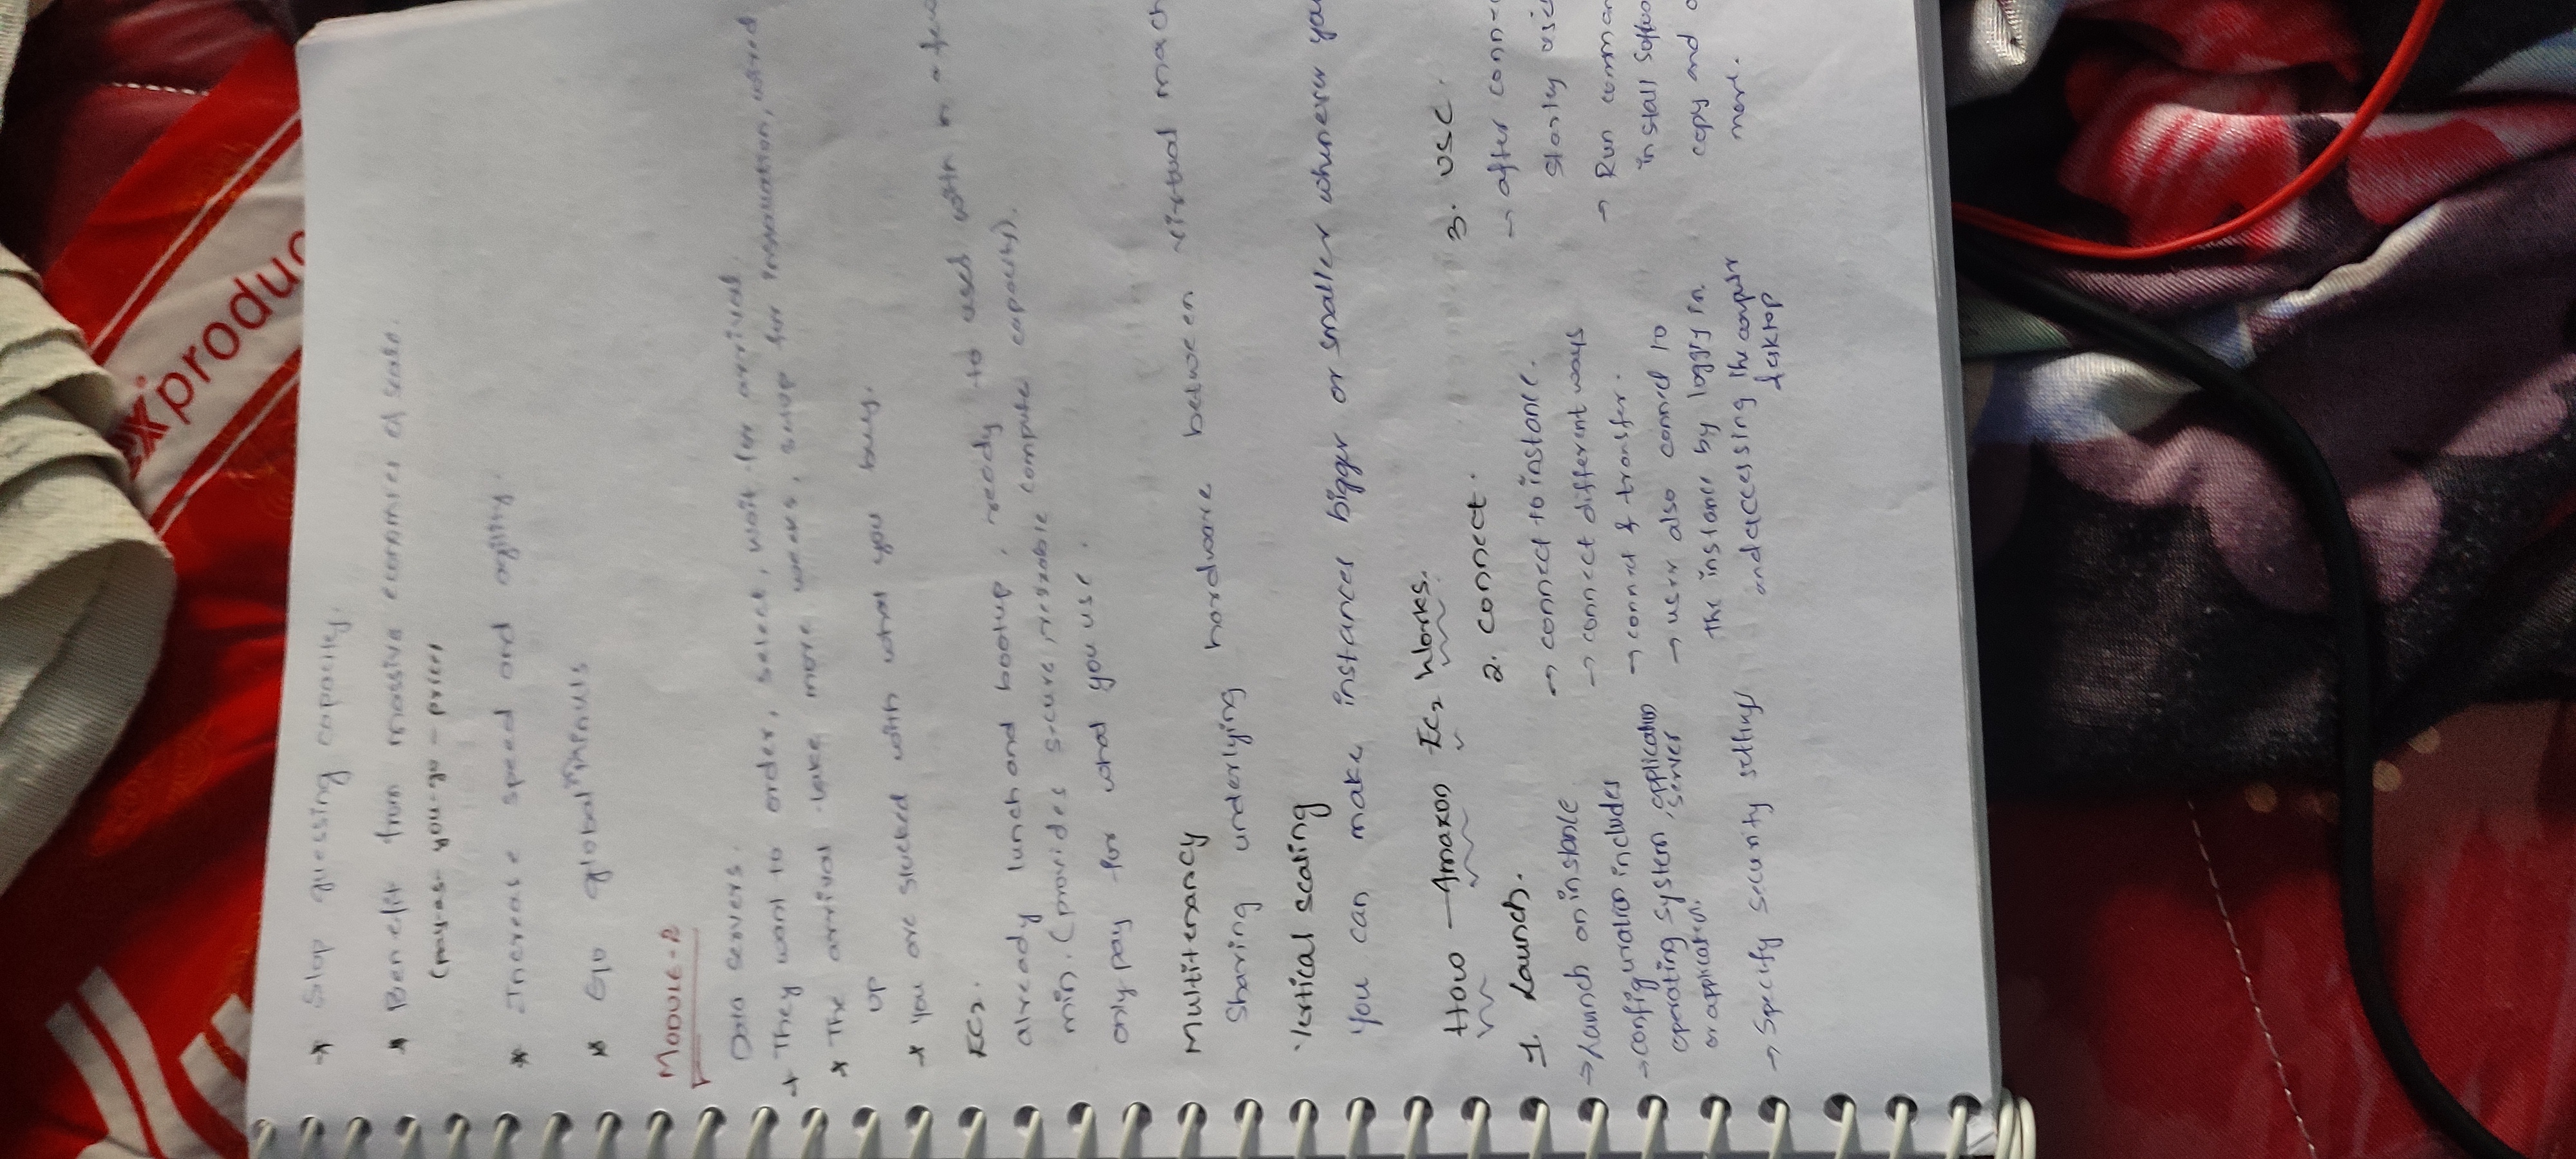 * Stop guessing capacity.
* Benefit from massive economies of scale.
(pay-as-you-go-prices
* Increase speed and agility.
* Go global in minuts
Module-2
Data servers.
* They want to order, select, wait for arrival.
* The arrival take more weeks, setup for
up
* You are stucked with what you buy.
EC2.
already lunch and bootup, ready to used with in a few
min. (provides secure, compute capacity).
only pay for what you use.
Multitenancy
Sharing underlying hardware between virtual mach
Vertical scaling
You can make instances bigger or smaller whenever you
How Amazon EC2 Works.
1. Launch.
→ Launch an instance
→ configuration includes
operating system, application
server
or application.
→ Specify security settings
2. connect.
→ connect to instance.
→ connect different ways
→ connect & transfer.
→ user also connect to
the instance by loggin in
and accessing the computer
desktop
3. use.
→ after conne
start
→ Run comman
install softwa
copy and o
more.